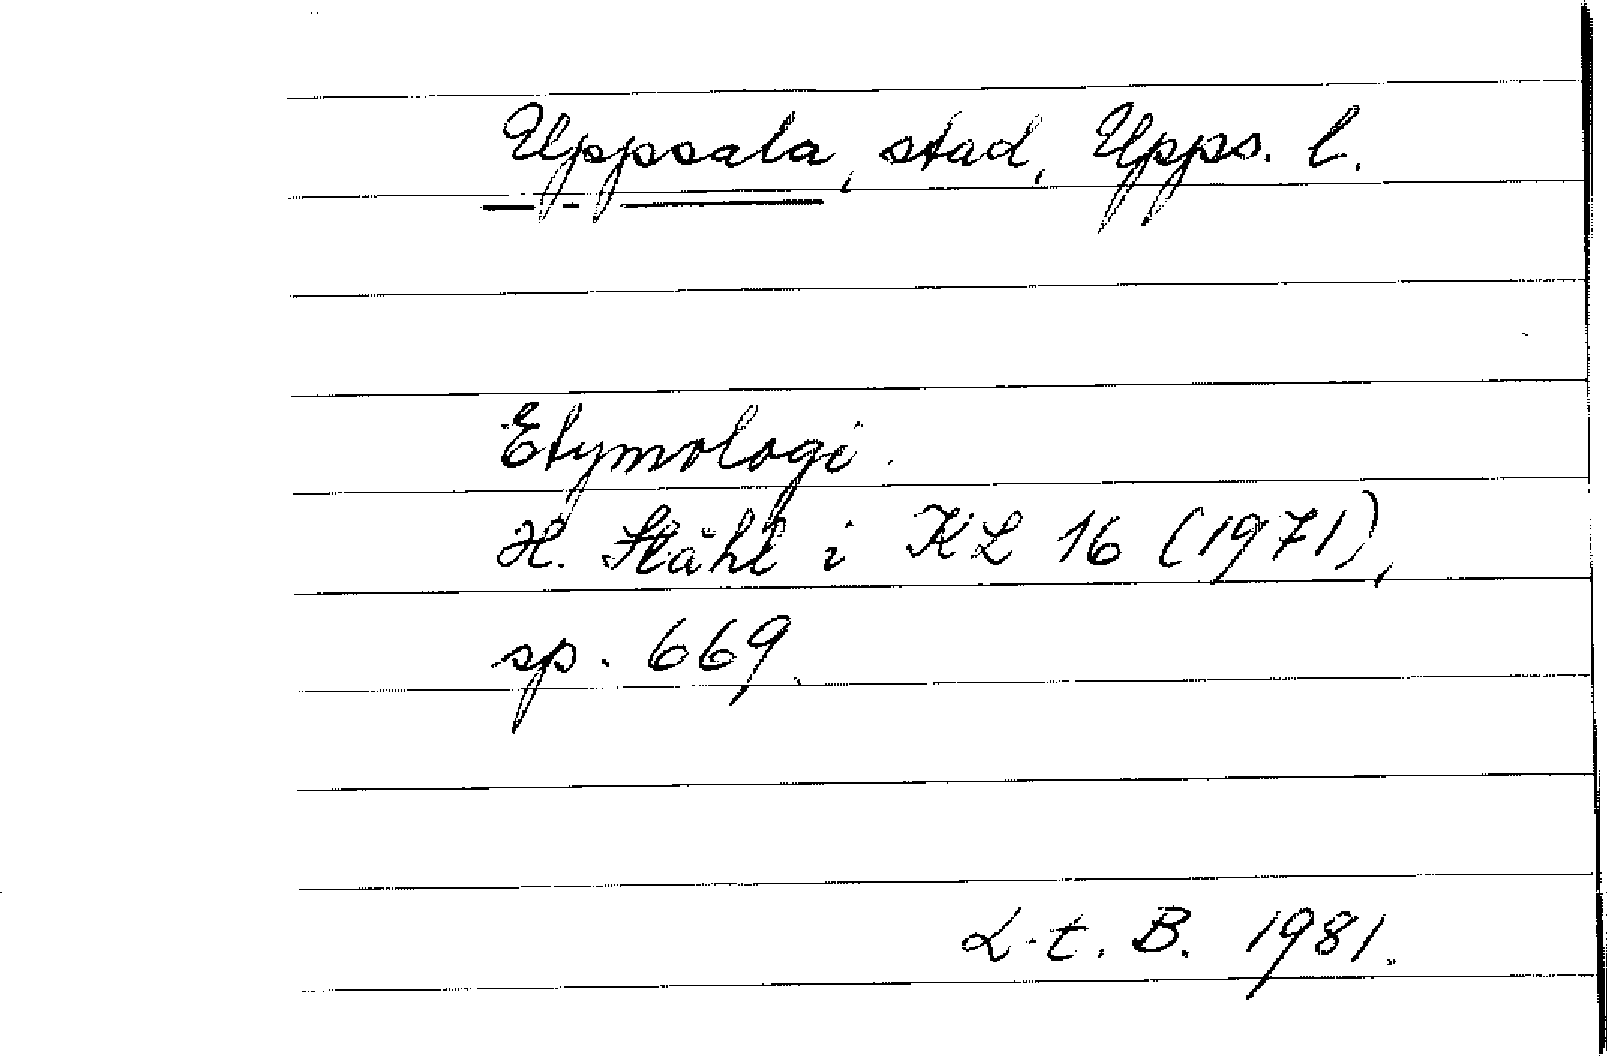 Uppsala, stad, Upps. l.
Etymologi.
H. Ståhl i KL 16 (1971),
sp. 669.
L-t. B. 1981.